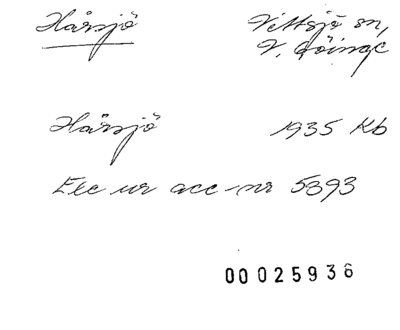 Hårsjö
Vittsjö sn,
V. Göinge
Hårsjö 1935 Kb
Exc ur acc-nr 5893
00025936